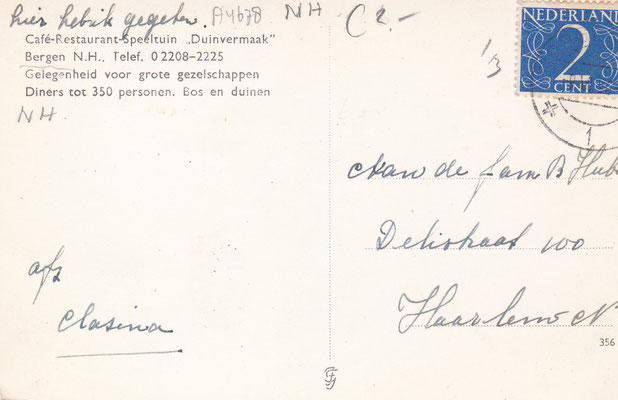 hier heb ik gegeten.
A4678
NH
C 2.-
Café-Restaurant-Speeltuin „Duinvermaak"
Bergen N.H., Telef. 0 2208-2225
Gelegenheid voor grote gezelschappen
Diners tot 350 personen. Bos en duinen
NH.
NEDERLAND
2
CENT
1/3
1
Aan de fam B Hub
Delistraat 100
Haarlem N
afz
Clasina
356